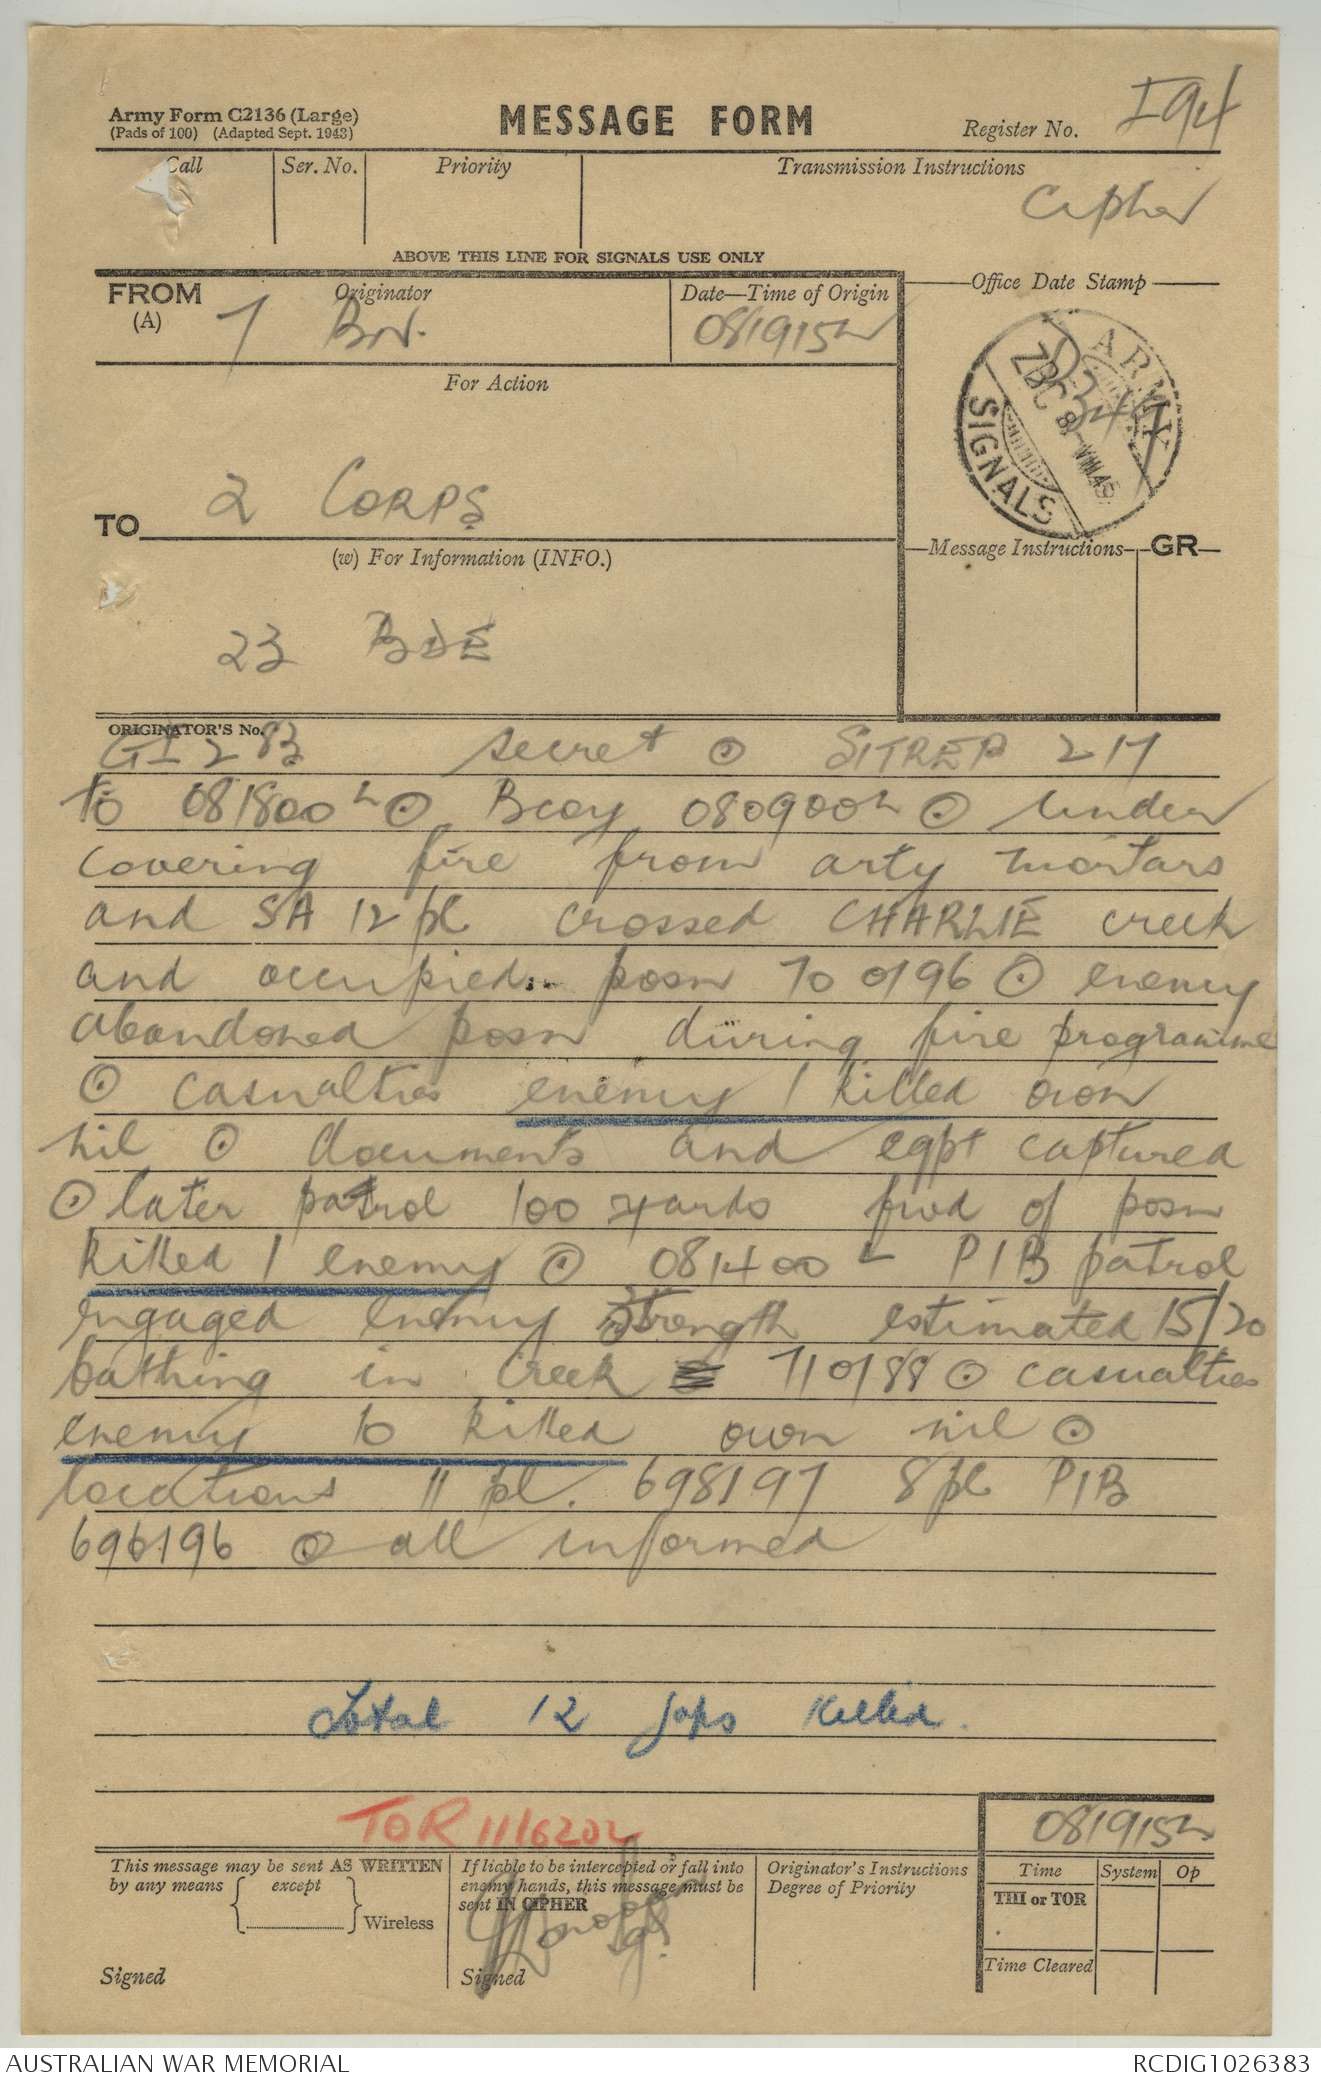 Army Form C2136 (Large)
(Pads of 100) (Adapted Sept. 1943)
MESSAGE FORM
Register No. I94
Call
Ser. No.
Priority
Transmission Instructions
Cipher
ABOVE THIS LINE FOR SIGNALS USE ONLY
FROM
(A)
Originator
7 BN.
Date—Time of Origin
081915L
Office Date Stamp
ARMY
ZDC 8 VIII 45
SIGNALS
For Action
2 CORPS
TO
(w) For Information (INFO.)
23 BDE
Message Instructions
GR
ORIGINATOR'S No.
GI 283 secret ⊙ SITREP 217
to 081800L ⊙ Bcoy 080900L ⊙ under
covering fire from arty mortars
and SA 12 pl crossed CHARLIE creek
and occupied posn 700196 ⊙ enemy
abandoned posn during fire programme
⊙ casualties enemy 1 killed own
nil ⊙ documents and eqpt captured
⊙ later patrol 100 yards fwd of posn
killed 1 enemy ⊙ 081400L PIB patrol
engaged enemy strength estimated 15/20
bathing in creek 710188 ⊙ casualties
enemy 10 killed own nil ⊙
locations 11 pl. 698197 8 pl PIB
696196 ⊙ all informed
Total 12 Japs killed.
TOR 11/0202
081915L
This message may be sent AS WRITTEN
by any means except
Wireless
Signed
If liable to be intercepted or fall into
enemy hands, this message must be
sent IN CIPHER
Signed
Originator's Instructions
Degree of Priority
Time
System
Op
THI or TOR
Time Cleared
AUSTRALIAN WAR MEMORIAL
RCDIG1026383